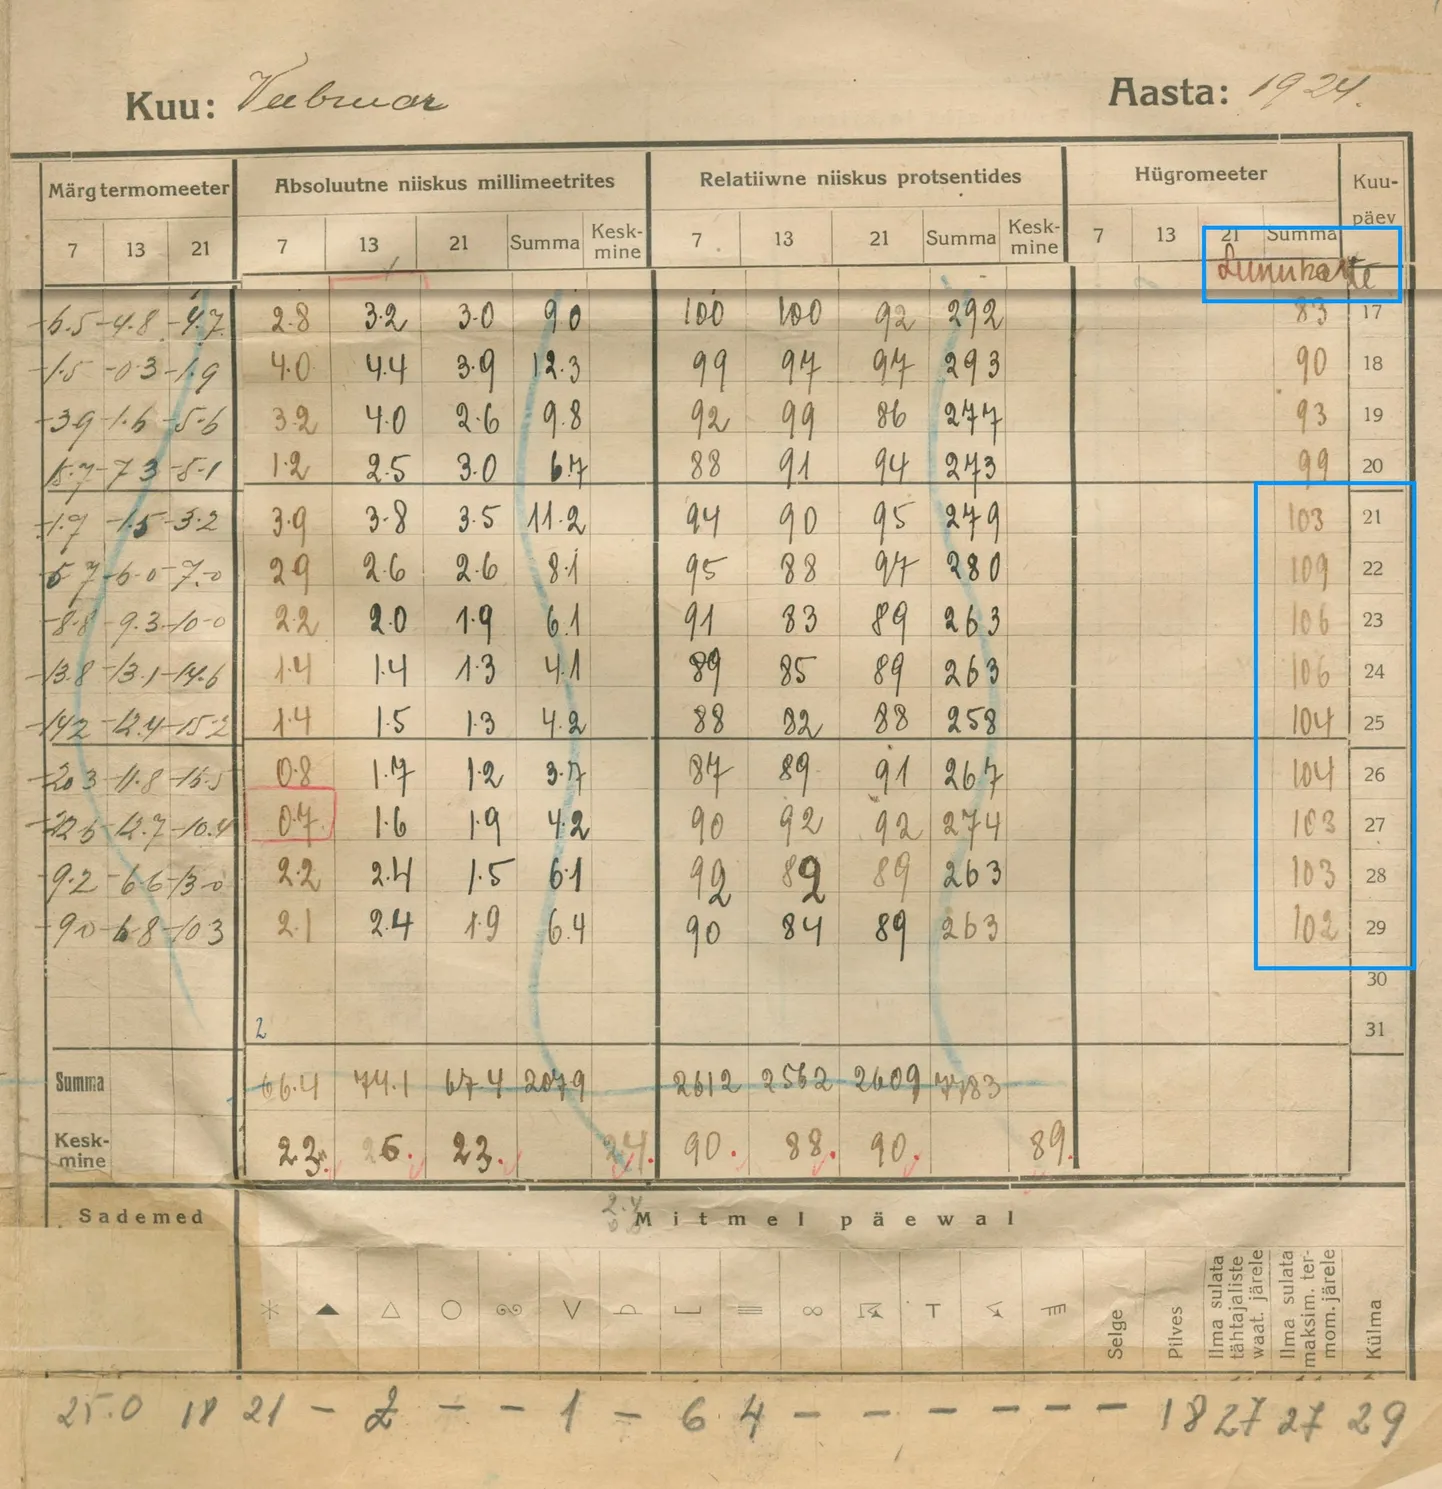 Kuu: Veebruar Aasta: 1924.
Märg termomeeter Absoluutne niiskus millimeetrites Relatiiwne niiskus protsentides Hügromeeter Kuu-päev
7 13 21 7 13 21 Summa Kesk-mine 7 13 21 Summa Kesk-mine 7 13 21 Summa
Lumikate
-6.5 -4.8 -4.7 2.8 3.2 3.0 9.0 100 100 92 292 83 17
-1.5 -0.3 -1.9 4.0 4.4 3.9 12.3 99 97 97 293 90 18
-3.9 -1.6 -5.6 3.2 4.0 2.6 9.8 92 99 86 277 93 19
-7.3 1.2 2.5 3.0 6.7 88 91 94 273 99 20
-1.7 -1.5 -3.2 3.9 3.8 3.5 11.2 94 90 95 279 103 21
-6.0 -7.0 2.9 2.6 2.6 8.1 95 88 97 280 109 22
-8.8 -9.3 -10.0 2.2 2.0 1.9 6.1 91 83 89 263 106 23
-13.8 -13.1 -14.6 1.4 1.4 1.3 4.1 89 85 89 263 106 24
-14.2 -12.4 -15.2 1.4 1.5 1.3 4.2 88 82 88 258 104 25
-20.3 -11.8 -15.5 0.8 1.7 1.2 3.7 87 89 91 267 104 26
-12.7 -10.4 0.7 1.6 1.9 4.2 90 92 92 274 103 27
-9.2 -6.6 -13.0 2.2 2.4 1.5 6.1 92 82 89 263 103 28
-9.0 -6.8 -10.3 2.1 2.4 1.9 6.4 90 84 89 263 102 29
30
2 31
Summa 66.4 74.1 67.4 207.9 2612 2562 2609 7783
Kesk-mine 2.3 2.6 2.3 2.4 90 88 90 89
2.4
Sademed Mitmel päewal
Selge Pilves Ilma sulata tähtajaliste waat. järele Ilma sulata maksim. ter-mom. järele Külma
25.0 18 21 - 2 - - 1 - 6 4 - - - - - - 18 27 27 29